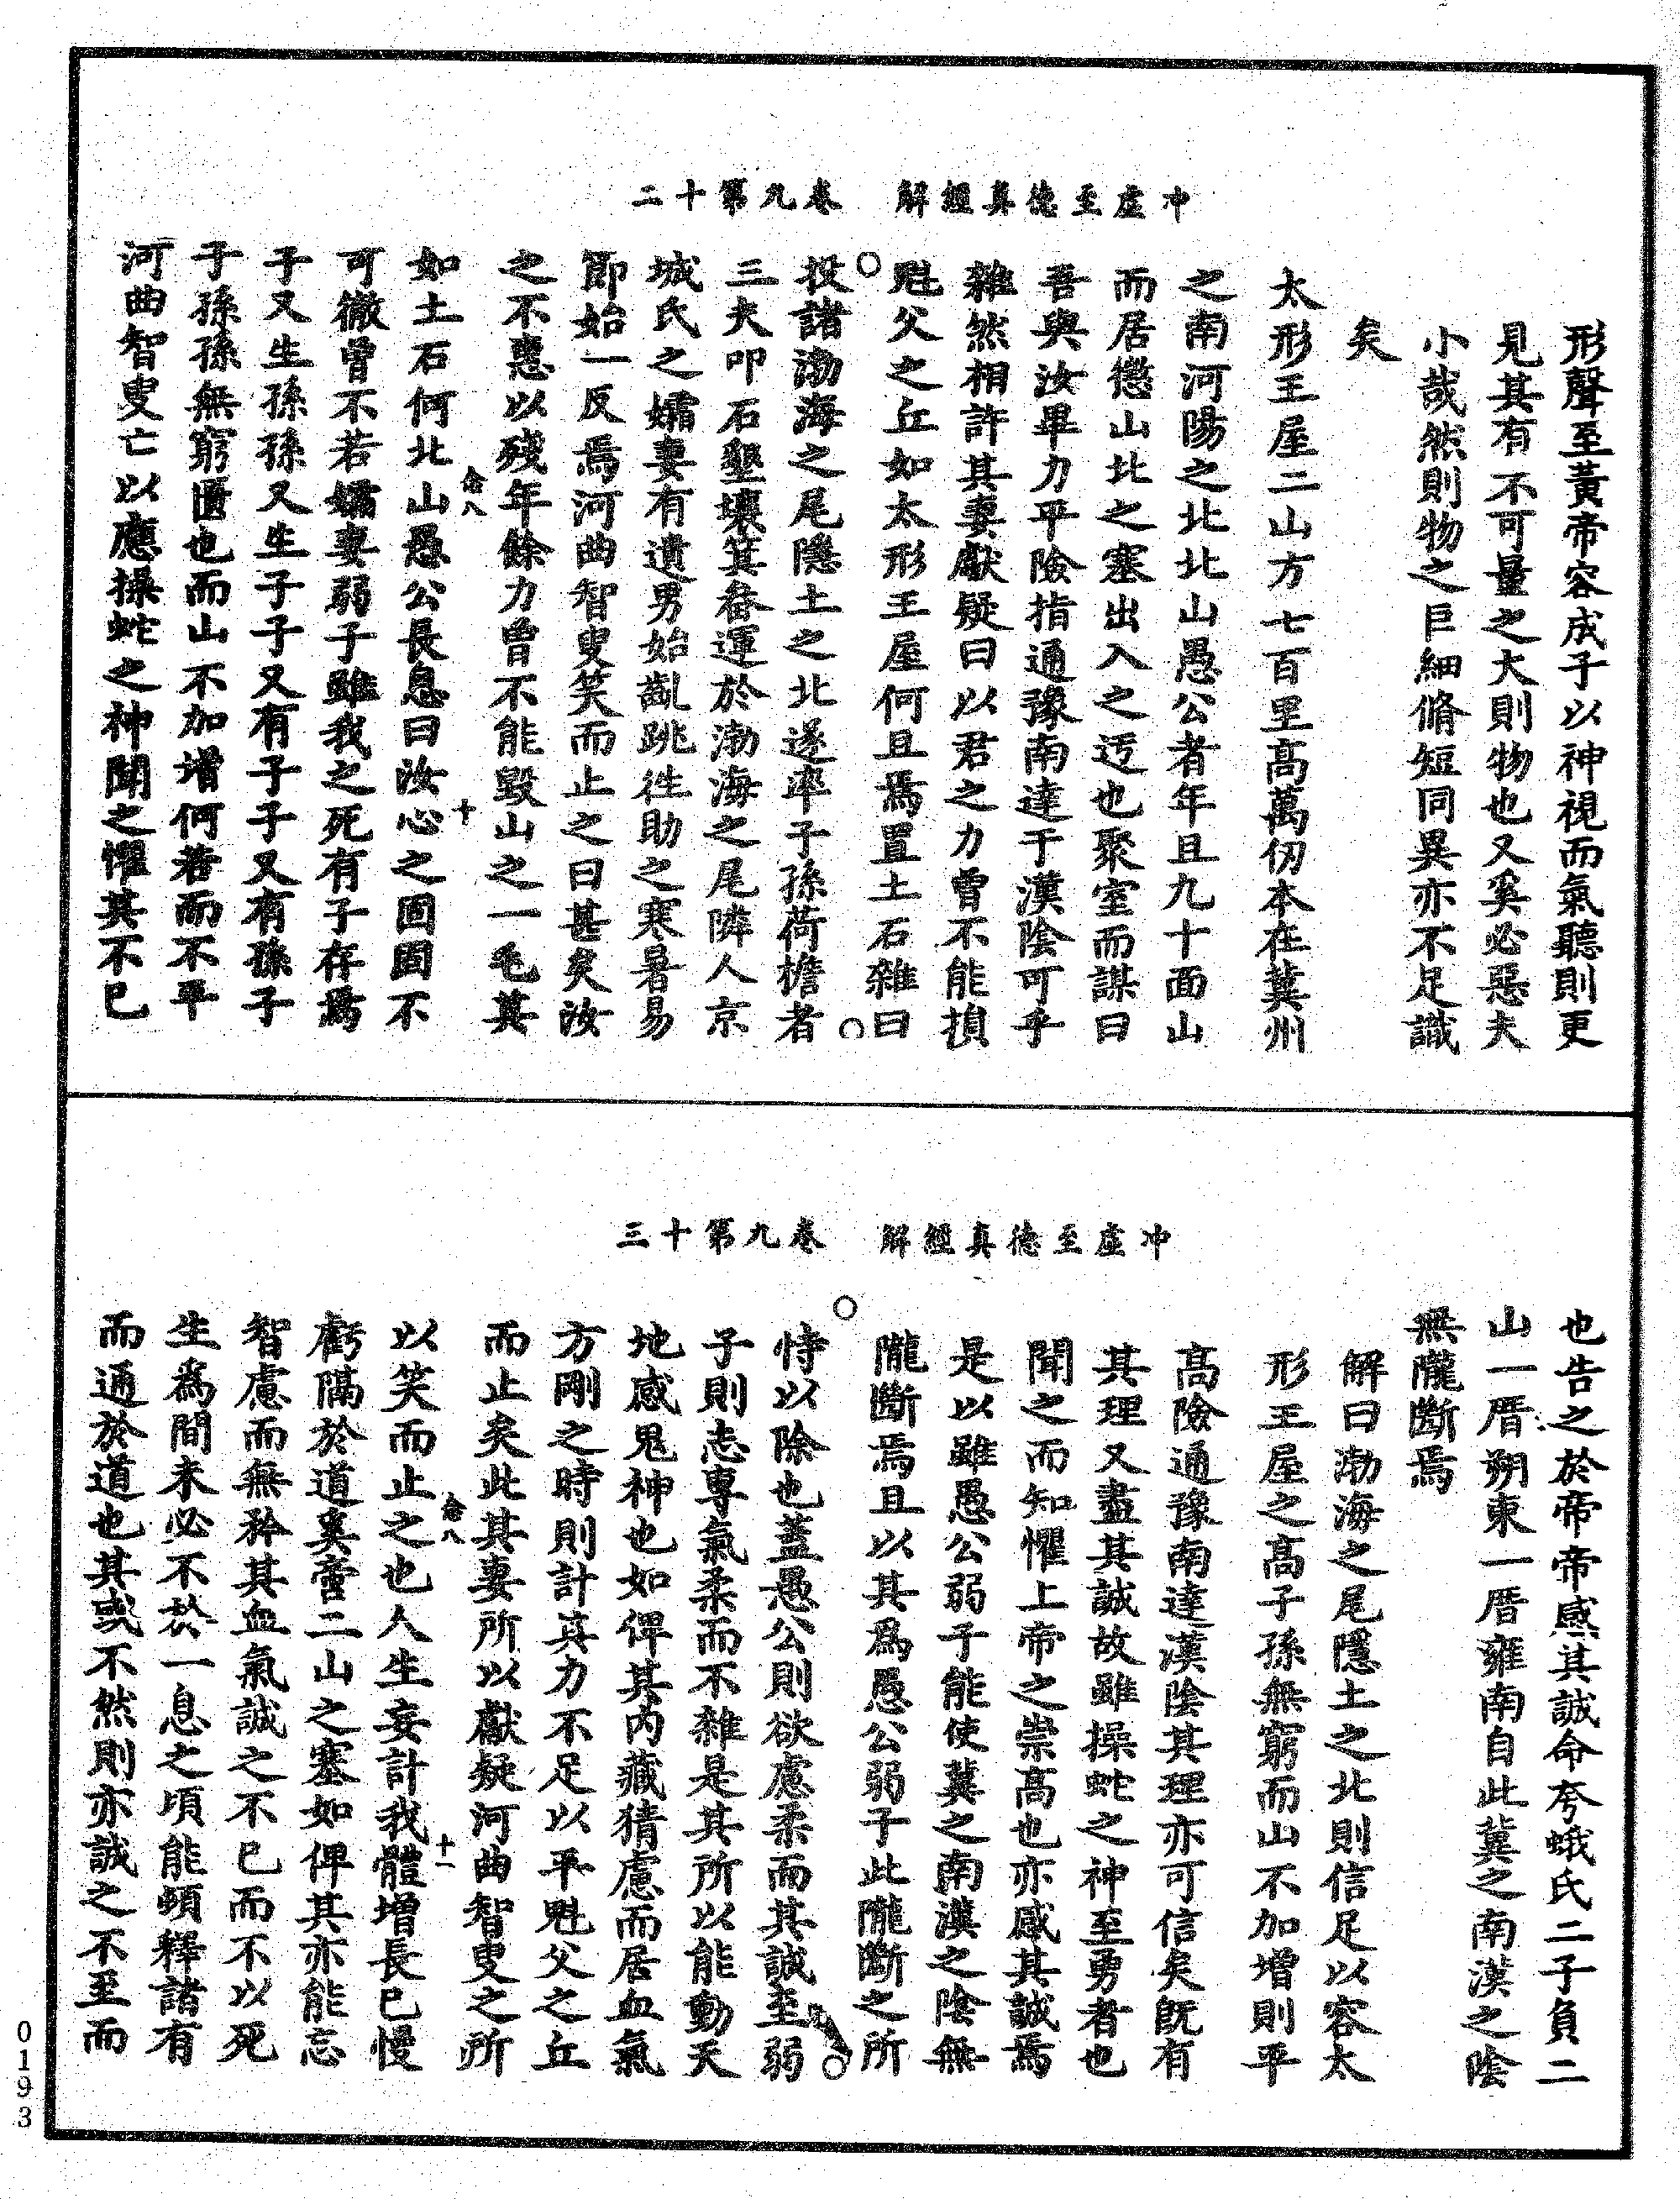 冲虛至德真經解　卷九第十二
形聲至黃帝容成子以神視而氣聽則更
見其有不可量之大則物也又奚必惡夫
小哉然則物之巨細脩短同異亦不足識
矣
太形王屋二山方七百里高萬仞本在冀州
之南河陽之北北山愚公者年且九十面山
而居懲山北之塞出入之迃也聚室而謀曰
吾與汝畢力平險指通豫南達于漢陰可乎
雜然相許其妻獻疑曰以君之力曾不能損
魁父之丘如太形王屋何且焉置土石雜曰
投諸渤海之尾隱土之北遂率子孫荷擔者
三夫叩石墾壤箕畚運於渤海之尾隣人京
城氏之孀妻有遺男始齔跳徃助之寒暑易
節始一反焉河曲智叟笑而止之曰甚矣汝
之不惠以殘年餘力曾不能毀山之一毛其
如土石何北山愚公長息曰汝心之固固不
念八
十
可徹曾不若孀妻弱子雖我之死有子存焉
子又生孫孫又生子子又有子子又有孫子
子孫孫無窮匱也而山不加增何若而不平
河曲智叟亡以應操蛇之神聞之懼其不已
冲虛至德真經解　卷九第十三
也告之於帝帝感其誠命夸蛾氏二子負二
山一厝朔東一厝雍南自此冀之南漢之陰
無隴斷焉
解曰渤海之尾隱土之北則信足以容太
形王屋之高子孫無窮而山不加增則平
高險通豫南達漢陰其理亦可信矣旣有
其理又盡其誠故雖操蛇之神至勇者也
聞之而知懼上帝之崇高也亦感其誠焉
是以雖愚公弱子能使冀之南漢之陰無
隴斷焉且以其爲愚公弱子此隴斷之所
恃以除也蓋愚公則欲慮柔而其誠至弱
子則志專氣柔而不雜是其所以能動天
地感鬼神也如俾其內藏猜慮而居血氣
方剛之時則計其力不足以平魁父之丘
而止矣此其妻所以獻疑河曲智叟之所
以笑而止之也人生妄計我體增長已慢
念八
十一
虧隔於道奚啻二山之塞如俾其亦能忘
智慮而無矜其血氣誠之不已而不以死
生爲間未必不於一息之頃能頓釋諸有
而通於道也其或不然則亦誠之不至而
0193